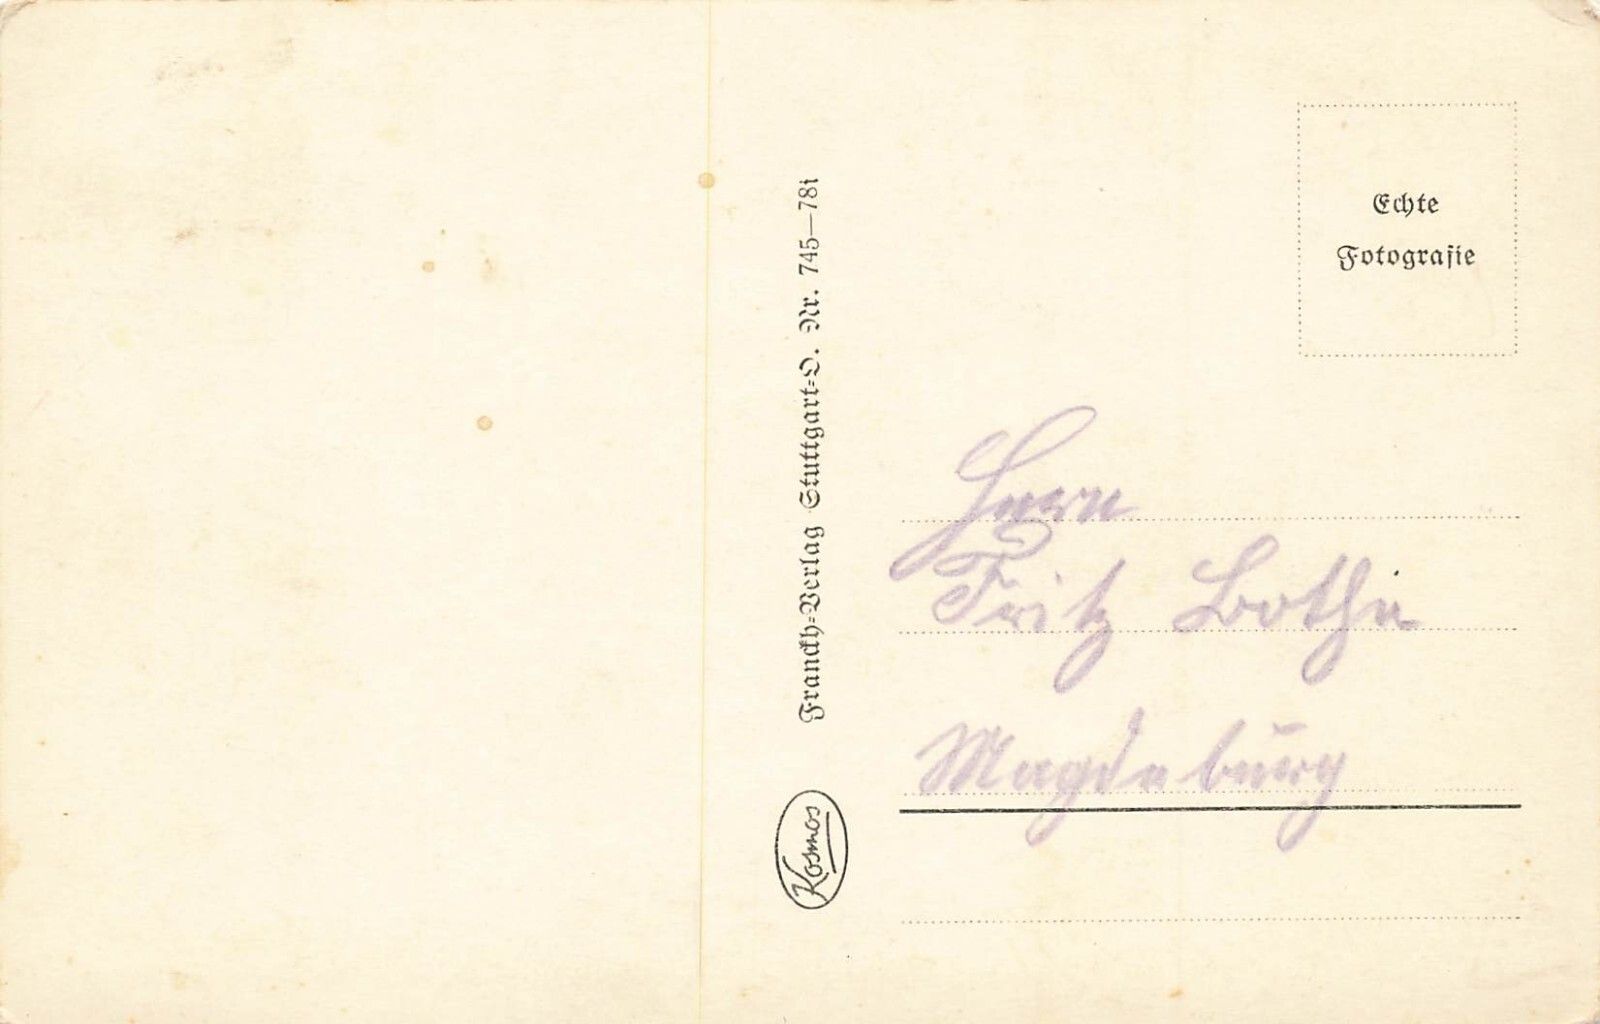 Echte
Fotografie
Franckh-Verlag Stuttgart-O. Nr. 745—781
Kosmos
Herrn
Fritz Bothe
Magdeburg